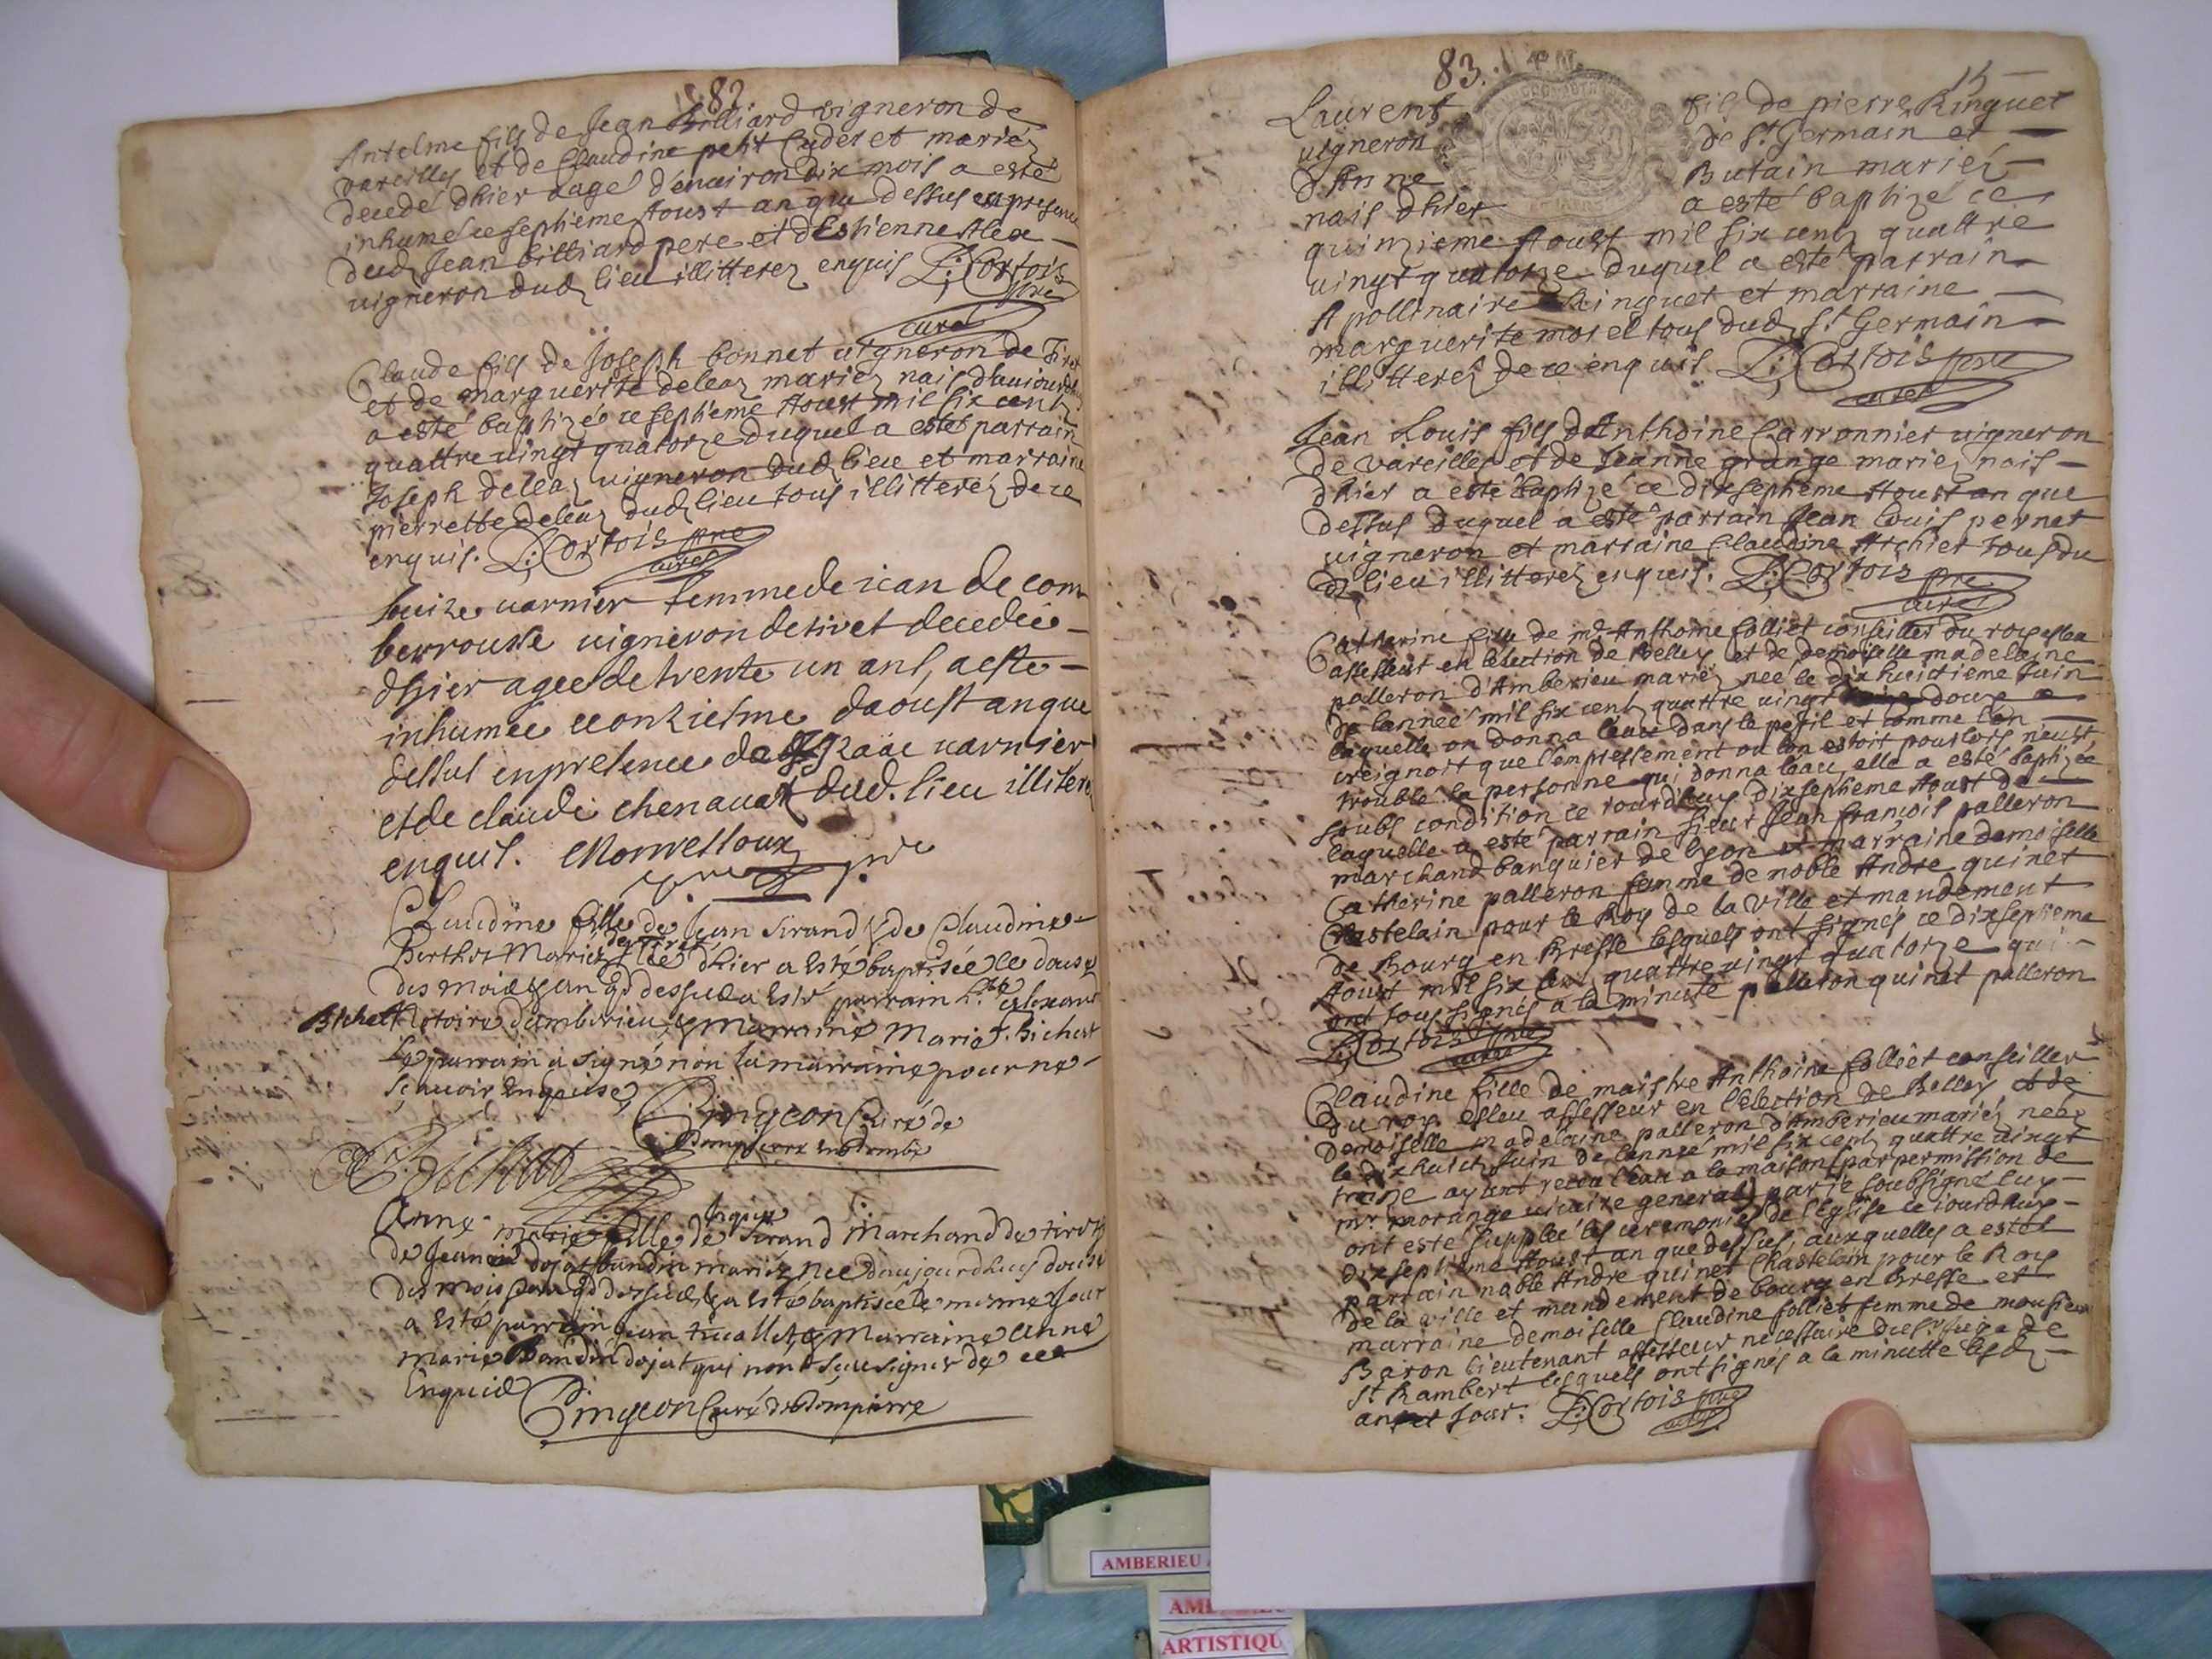 82
Antelme fils de Jean Billiard vigneron de
vareilles et de Claudine petit Cyder et mariéz
decedé dhier aagé d'enuiron dix mois a esté
inhumé ce septieme Aoust an que dessus en presence
dud Jean billiard pere et d'Estienne Alex
uigneron dud lieu illitterez enquis L: Cortois
pre
curé
Claude fils de Joseph bonnet uigneron de Tiret
et de marguerite deleaz mariez nais d'aujourdhuy
a esté baptizé ce septieme Aoust mil six centz
quattre uingt quatorze duquel a esté parrain
Joseph deleaz uigneron dud lieu et marraine
pierrette deleaz dud lieu tous illitterez de ce
enquis. L: Cortois pre
curé
Louize uarnier femme de iean de com
berrousse uigneron de tiret decedée
dhier agee de trente un ans, a esté
inhumée ce onziesme daoust an que
dessus en presence de Izaac uarnier
et de claude chenauax dud. lieu illiterez
enquis. Monvelloux
pre
Claudine fille de Jean Sirand & de Claudine
Berthet Mariez de tiret née dhier a esté baptisée le douse
des mois & an qd dessus a esté parrain
Bichat Notoire damberieu & Marraine Marie F. Bichat
Le parrain a signé non la marraine pour ne
sçauoir Enquise, Pingeon Curé de
Dompierre en Dombe
Bichat
Anne marie fille de Sirand Marchand de tiret &
de Jeanne dojat baudin mariez née daujourdhuy douse
des mois & an qd dessus & a esté baptisée le mesme jour
a esté parrain Jean & Marraine Anne
marie Baudin dojat qui nont sceu signer de ce
Enquis Pingeon Curé de Dompierre
83.
15
Laurent fils de pierre Ringuet
uigneron de St Germain et
d'Anne Butain mariéz
nais dhier a esté baptizé ce
quinzieme Aoust mil six centz quattre
uingt quatorze duquel a esté parrain
Apollinaire Ringuet et marraine
marguerite morel tous dud St Germain
illitterez de ce enquis. L: Cortois pre
curé
Jean Louis fils d'Anthoine Carronnier uigneron
de vareilles et de Jeanne grange mariez nais
dhier a esté baptizé ce dixseptieme Aoust an que
dessus duquel a esté parrain Jean Louis pernet
uigneron et marraine Claudine Archier tous du
d lieu illitterez enquis. L: Cortois pre
curé
Catherine fille de mr Anthoine folliet conseiller du roy esleu
assesseur en l'election de Belley et de demoiselle madelaine
palleron d'Amberieu mariéz née le dix huictieme Juin
de lannée mil six centz quattre uingt douze a
laquelle on donna leau dans le peril et comme l'on
creignoit que lempressement ou lon estoit pour lors neust
troublé la personne qui donna leau, elle a esté baptizée
soubs condition ce iourdhuy dixseptieme Aoust de
laquelle a esté parrain sieur Jean françois palleron
marchand banquier de lyon et marraine demoiselle
Catherine palleron femme de noble Andre quinet
Chastelain pour le Roy de la ville et mandement
de Bourg en Bresse lesquels ont signés ce dixseptieme
Aoust mil six centz quattre uingt quatorze qui
ont tous signés a la minute palleron quinet palleron
L: Cortois pre
curé
Claudine fille de maistre Anthoine folliet conseiller
du roy esleu assesseur en l'election de Belley et de
demoiselle madelaine palleron d'Amberieu mariéz née
le dix huict Juin de lannée mil six centz quattre uingt
treize ayant receu l'eau a la maison (par permission de
mr morange uicaire general) par ie soubsigné luy
ont este supplée les ceremonies de l'eglise ce iourdhuy
dixseptieme Aoust an que dessus, auxquelles a estés
parrain noble Andre quinet Chastelain pour le Roy
de la ville et mandement de bourg en bresse et
marraine demoiselle Claudine folliet femme de monsieur
Baron lieutenant assesseur necessaire de
St Rambert lesquels ont signés a la minutte lesd
an et jour. L: Cortois pre
curé
AMBERIEU
ARTISTIQU